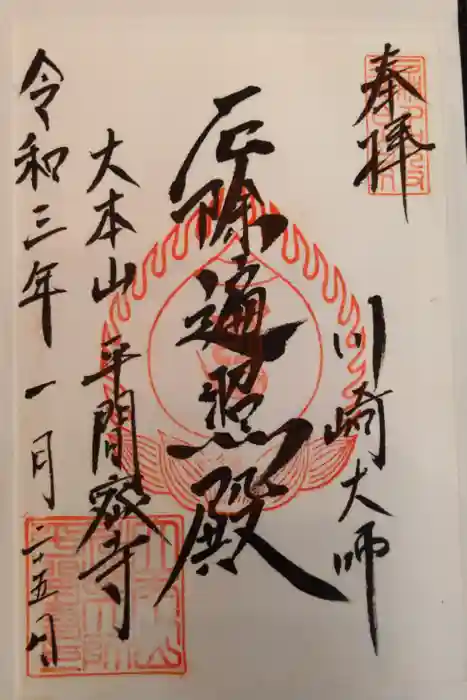 奉拝
川崎大師
厄除遍照殿
大本山 平間寺
令和三年一月二十五日